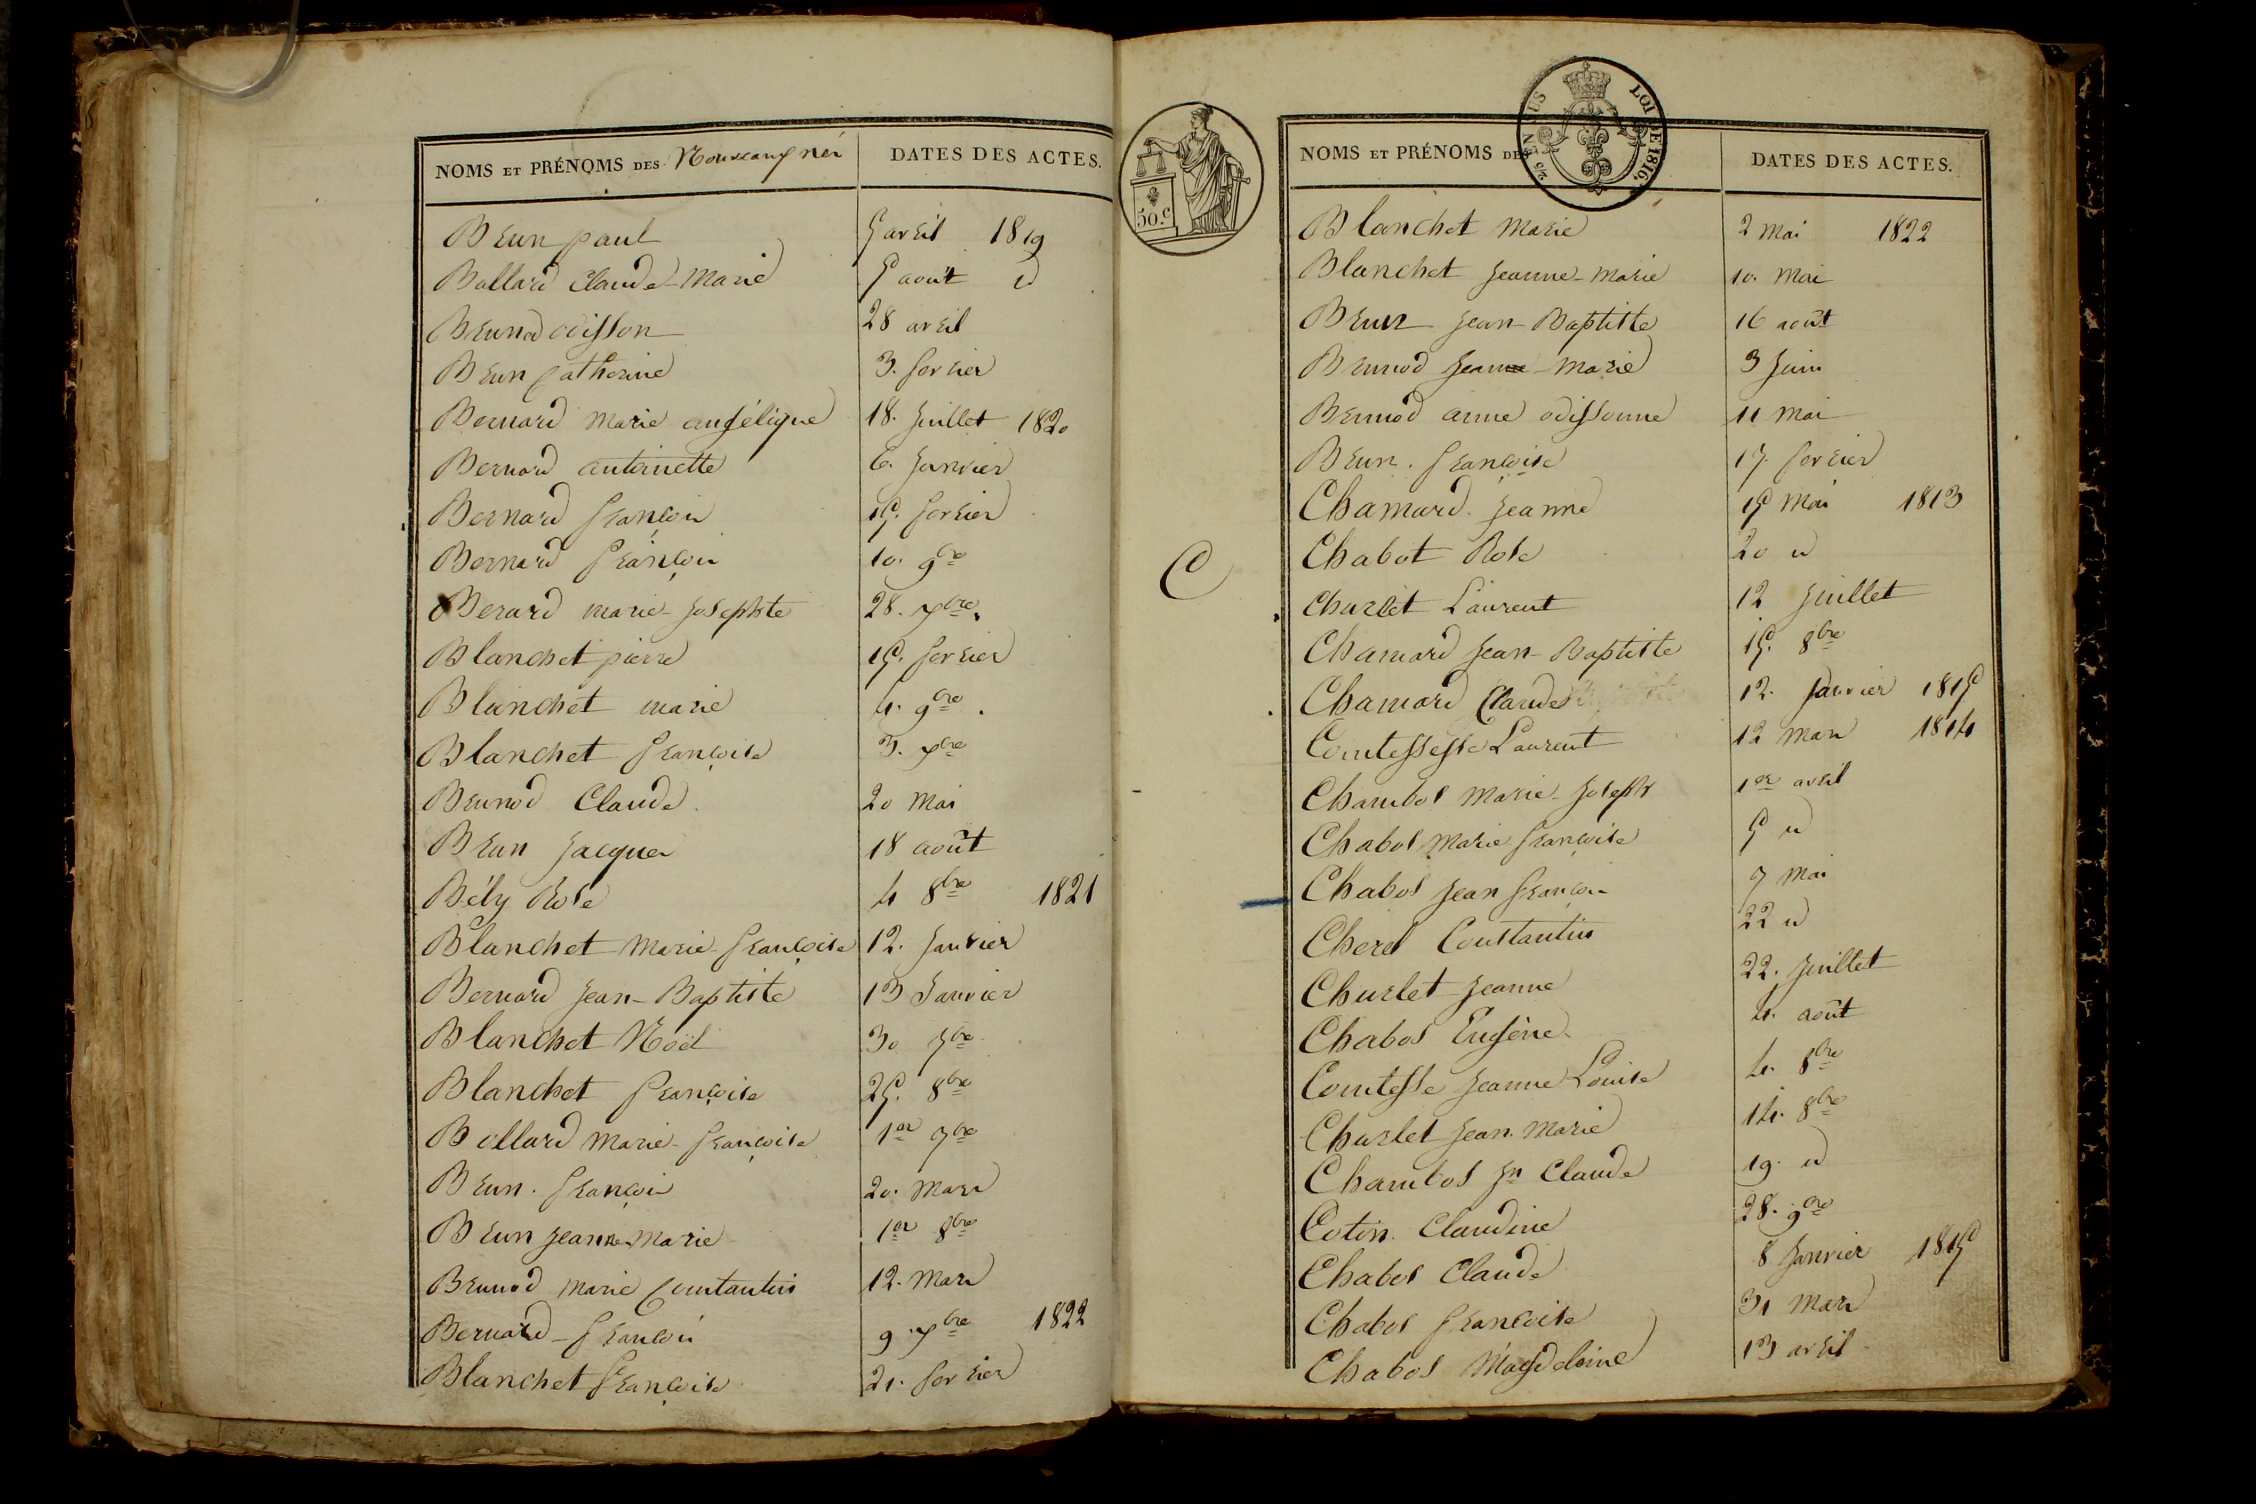 NOMS ET PRÉNOMS DES Nouveaux nés DATES DES ACTES.
Brun paul 5 avril 1819
Ballard Claude-Marie 5 août id
Brunod odisson 28 avril
Brun Catherine 3. fevrier
Bernard Marie angélique 18. Juillet 1820
Bernard antoinette 6. Janvier
Bernard françois 15. fevrier
Bernard françois 10. 9bre
Berard marie Josephte 28. xbre.
Blanchet pierre 15. fevrier
Blanchet marie 4. 9bre.
Blanchet françoise 3. xbre
Brunod Claude 20 Mai
Brun Jacques 18 août
Bély Rose 4 8bre 1821
Blanchet Marie françoise 12. Janvier
Bernard Jean-Baptiste 13 Janvier
Blanchet Noël 30 7bre
Blanchet françoise 25. 8bre
Bollard Marie-françoise 1er 7bre
Brun. françois 20. Mars
Brun Jeanne-Marie 1er 8bre
Brunod Marie Constantin 12. Mars
Bernard-françois 9 xbre 1822
Blanchet françoise 21. fevrier
50.c
LOI DE 1816.
EN SUS
NOMS ET PRÉNOMS DES DATES DES ACTES.
Blanchet Marie 2 mai 1822
Blanchet Jeanne-Marie 10. Mai
Brun Jean-Baptiste 16 août
Brunod Jeanne-Marie 3 Juin
Brunod anne odissonne 11 Mai
Brun. françoise 17. fevrier
Chamard. Jeanne 15 Mai 1813
C
Chabot Rose 20 id
Charlet Laurent 12 Juillet
Chamard Jean-Baptiste 15. 8bre
Chamard Claude 12. Janvier 1815
Comtessesse Laurent 12 Mars 1814
Chambos Marie-Joseph 1er avril
Chabos Marie françoise 5 id
Chabos Jean françois 7 Mai
Cheres Constantin 22 id
Charlet Jeanne 22. Juillet
Chabos Eugène 4. août
Comtesse Jeanne Louise 4. 8bre
Charlet Jean. Marie 14. 8bre
Chambos Jn Claude 19. id
Cotin. Claudine 28. 9bre
Chabos Claude 8 Janvier 1815
Chabos françoise 31 Mars
Chabos Magdeleine 13 avril